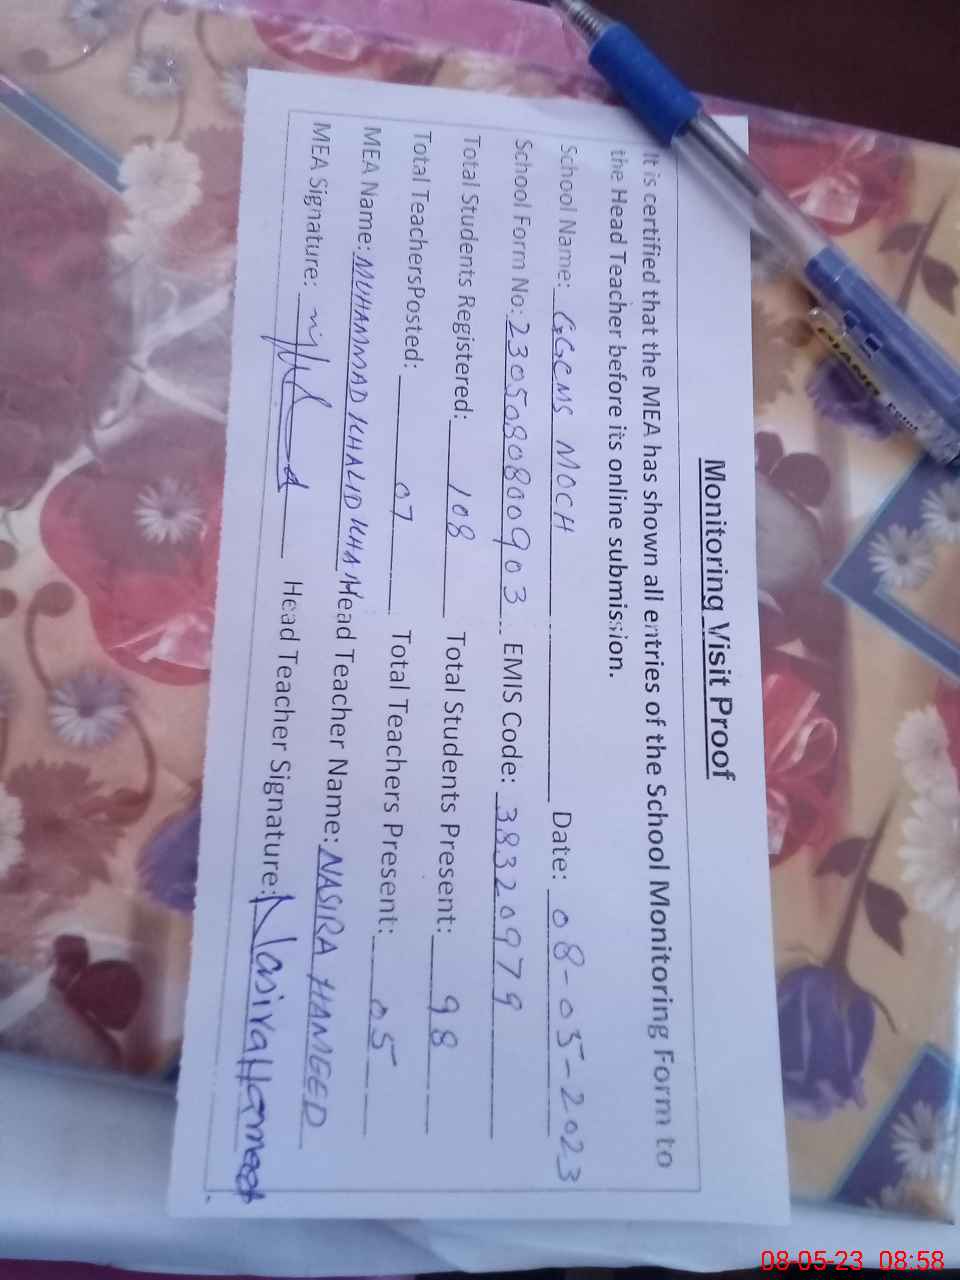 Monitoring Visit Proof
It is certified that the MEA has shown all entries of the School Monitoring Form to
the Head Teacher before its online submission.
School Name: GGCMS MOCH Date: 08-05-2023
School Form No: 230508080090 3 EMIS Code: 38320979
Total Students Registered: 108 Total Students Present: 98
Total TeachersPosted: 07 Total Teachers Present: 05
MEA Name: MUHAMMAD KHALID KHAN Head Teacher Name: NASIRA HAMEED
MEA Signature: Head Teacher Signature: Nasira Hameed
PIANO Point
08-05-23 08:58